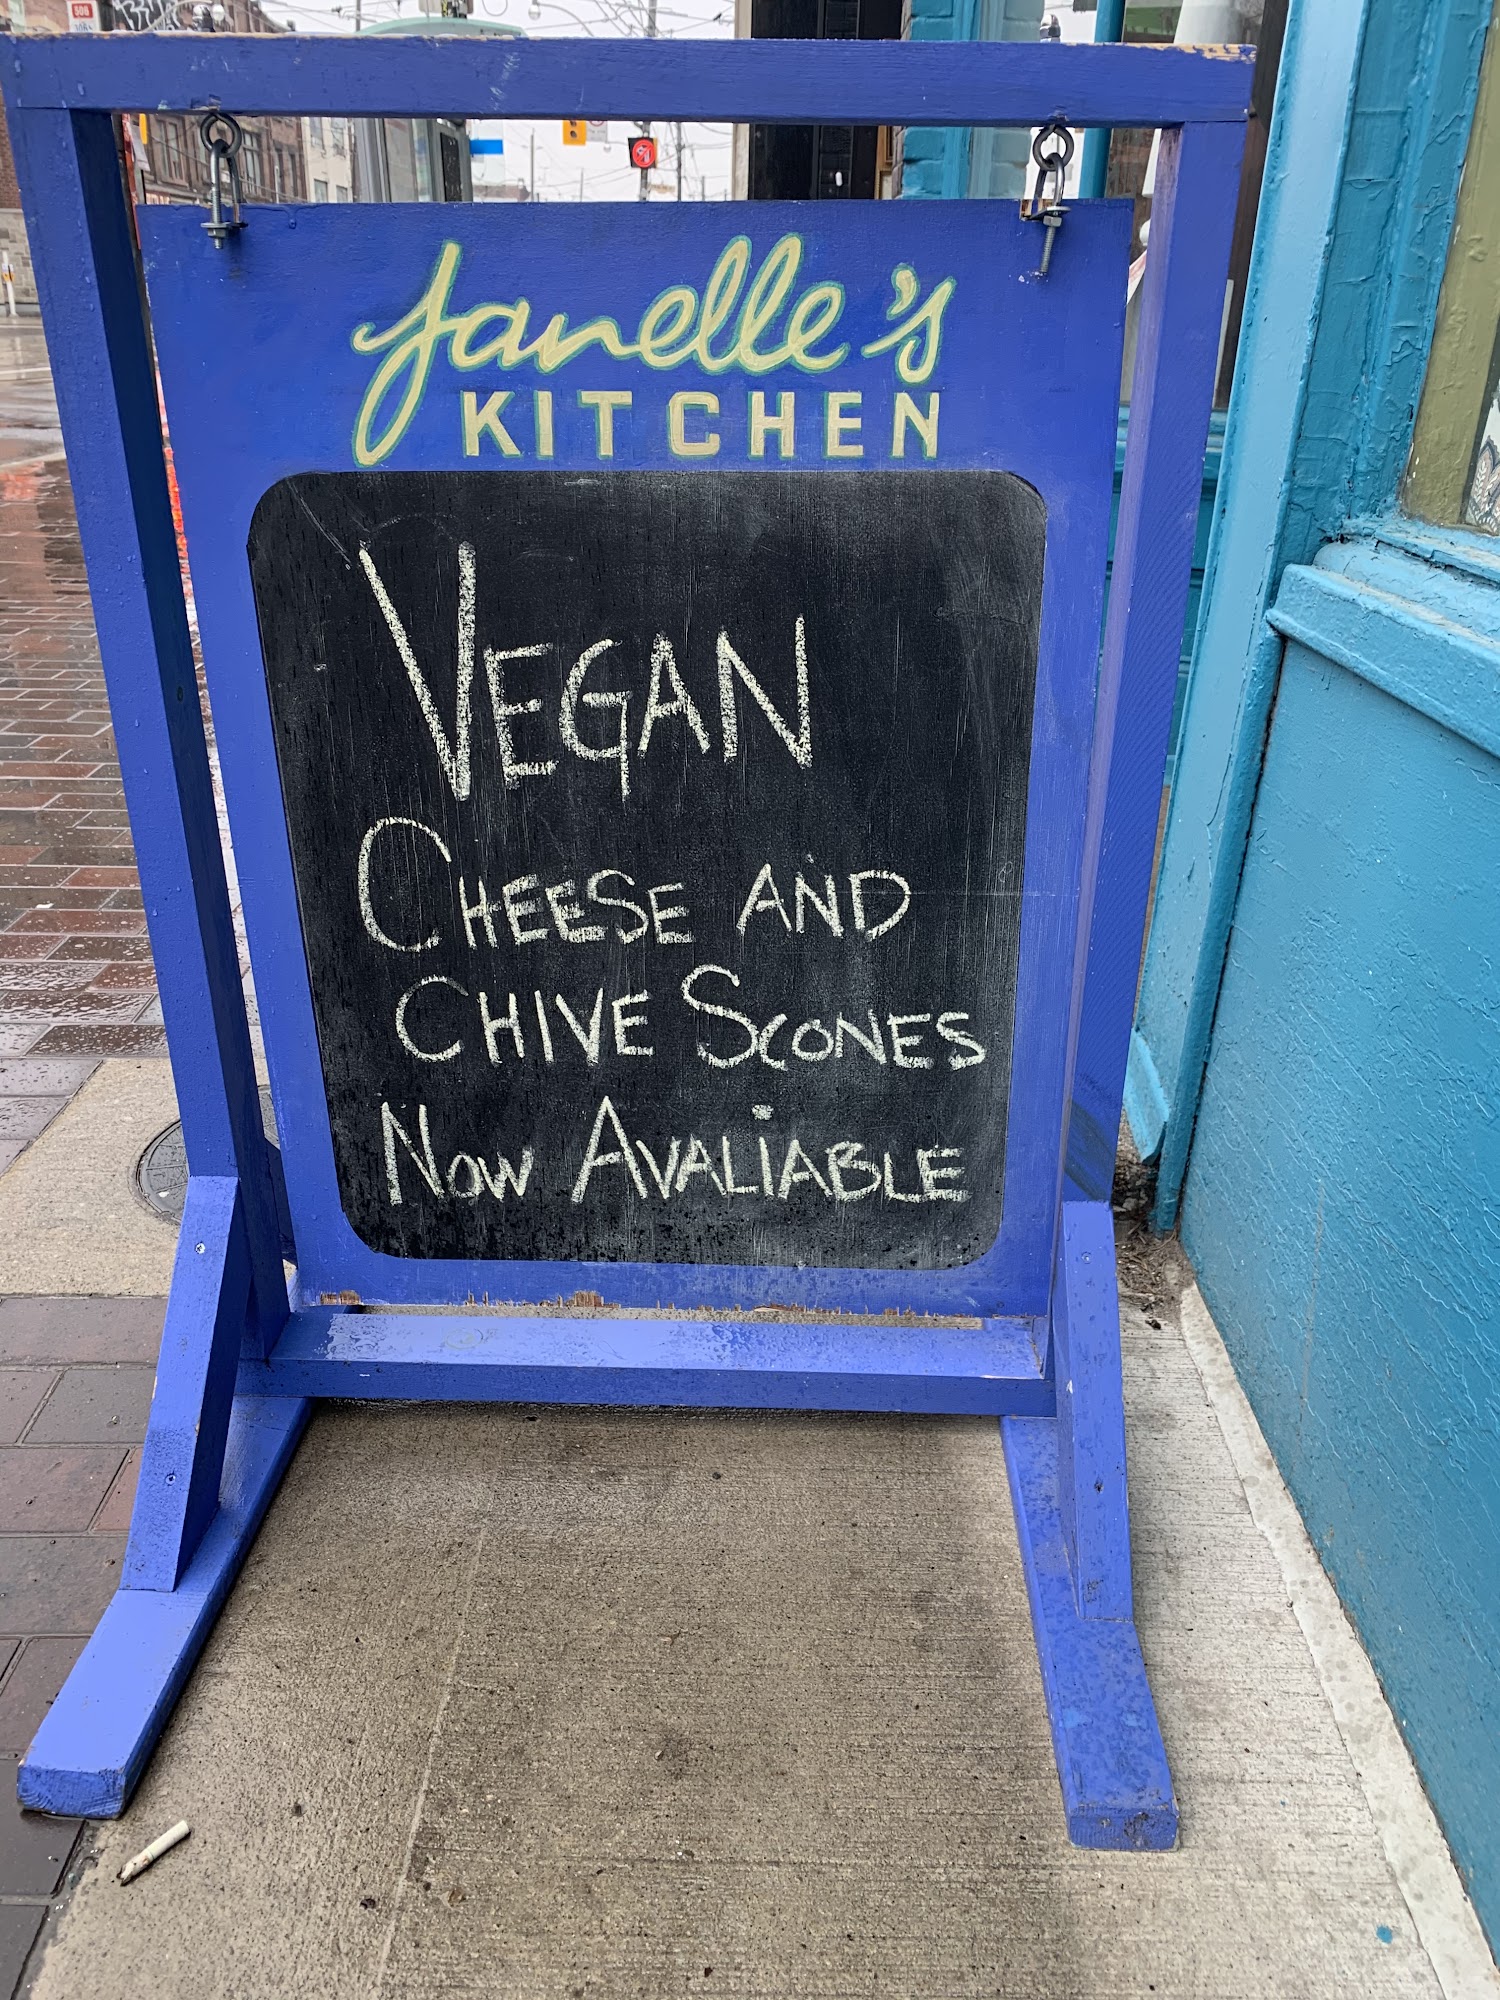 508
Janelle's
KITCHEN
VEGAN
CHEESE AND
CHIVE SCONES
NOW AVALIABLE